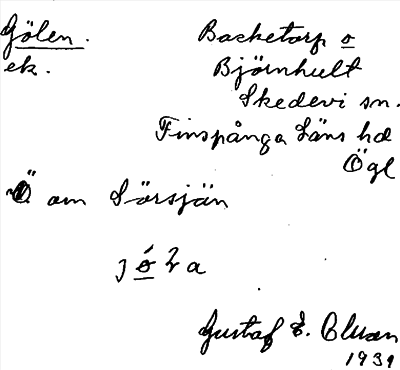 Gölen. Backetorp o
ek. Björnhult
Skedevi sn.
Finspånga Läns hd
Ögl
Ö om Sörsjön
Gustaf E.
1931